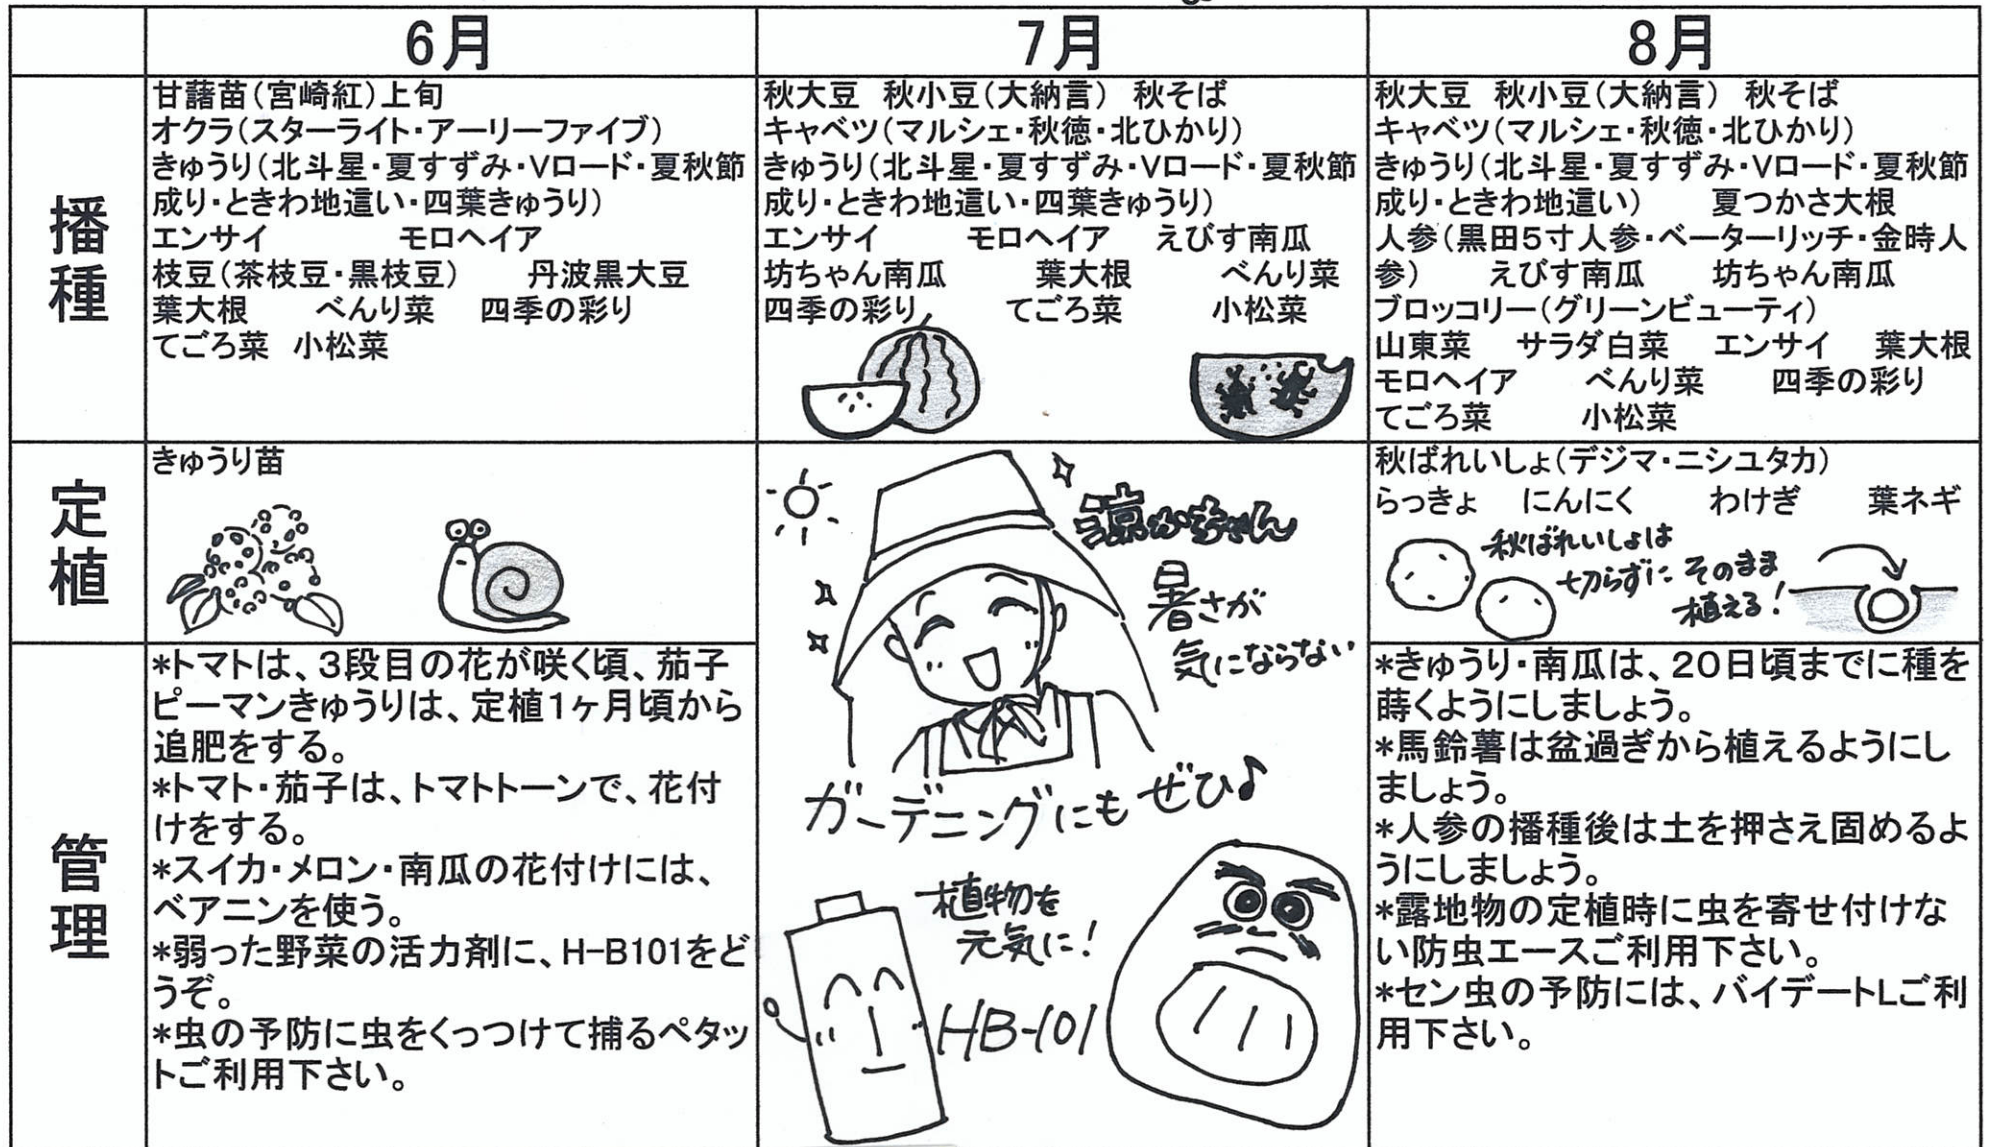 6月
7月
8月
播種
甘藷苗(宮崎紅)上旬
オクラ(スターライト・アーリーファイブ)
きゅうり(北斗星・夏すずみ・Vロード・夏秋節
成り・ときわ地這い・四葉きゅうり)
エンサイ モロヘイア
枝豆(茶枝豆・黒枝豆) 丹波黒大豆
葉大根 べんり菜 四季の彩り
てごろ菜 小松菜
秋大豆 秋小豆(大納言) 秋そば
キャベツ(マルシェ・秋徳・北ひかり)
きゅうり(北斗星・夏すずみ・Vロード・夏秋節
成り・ときわ地這い・四葉きゅうり)
エンサイ モロヘイア えびす南瓜
坊ちゃん南瓜 葉大根 べんり菜
四季の彩り てごろ菜 小松菜
秋大豆 秋小豆(大納言) 秋そば
キャベツ(マルシェ・秋徳・北ひかり)
きゅうり(北斗星・夏すずみ・Vロード・夏秋節
成り・ときわ地這い) 夏つかさ大根
人参(黒田5寸人参・ベーターリッチ・金時人
参) えびす南瓜 坊ちゃん南瓜
ブロッコリー(グリーンビューティ)
山東菜 サラダ白菜 エンサイ 葉大根
モロヘイア べんり菜 四季の彩り
てごろ菜 小松菜
定植
きゅうり苗
秋ばれいしょ(デジマ・ニシユタカ)
らっきょ にんにく わけぎ 葉ネギ
秋ばれいしょは
切らずに そのまま
植える!
管理
*トマトは、3段目の花が咲く頃、茄子
ピーマンきゅうりは、定植1ヶ月頃から
追肥をする。
*トマト・茄子は、トマトトーンで、花付
けをする。
*スイカ・メロン・南瓜の花付けには、
ベアニンを使う。
*弱った野菜の活力剤に、H-B101をど
うぞ。
*虫の予防に虫をくっつけて捕るペタッ
トご利用下さい。
涼かちゃん
暑さが
気にならない
ガーデニングにもぜひ♪
植物を
元気に!
HB-101
*きゅうり・南瓜は、20日頃までに種を
蒔くようにしましょう。
*馬鈴薯は盆過ぎから植えるようにし
ましょう。
*人参の播種後は土を押さえ固めるよ
うにしましょう。
*露地物の定植時に虫を寄せ付けな
い防虫エースご利用下さい。
*セン虫の予防には、バイデートLご利
用下さい。